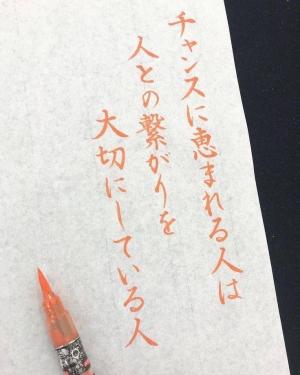 チャンスに恵まれる人は
人との繋がりを
大切にしている人